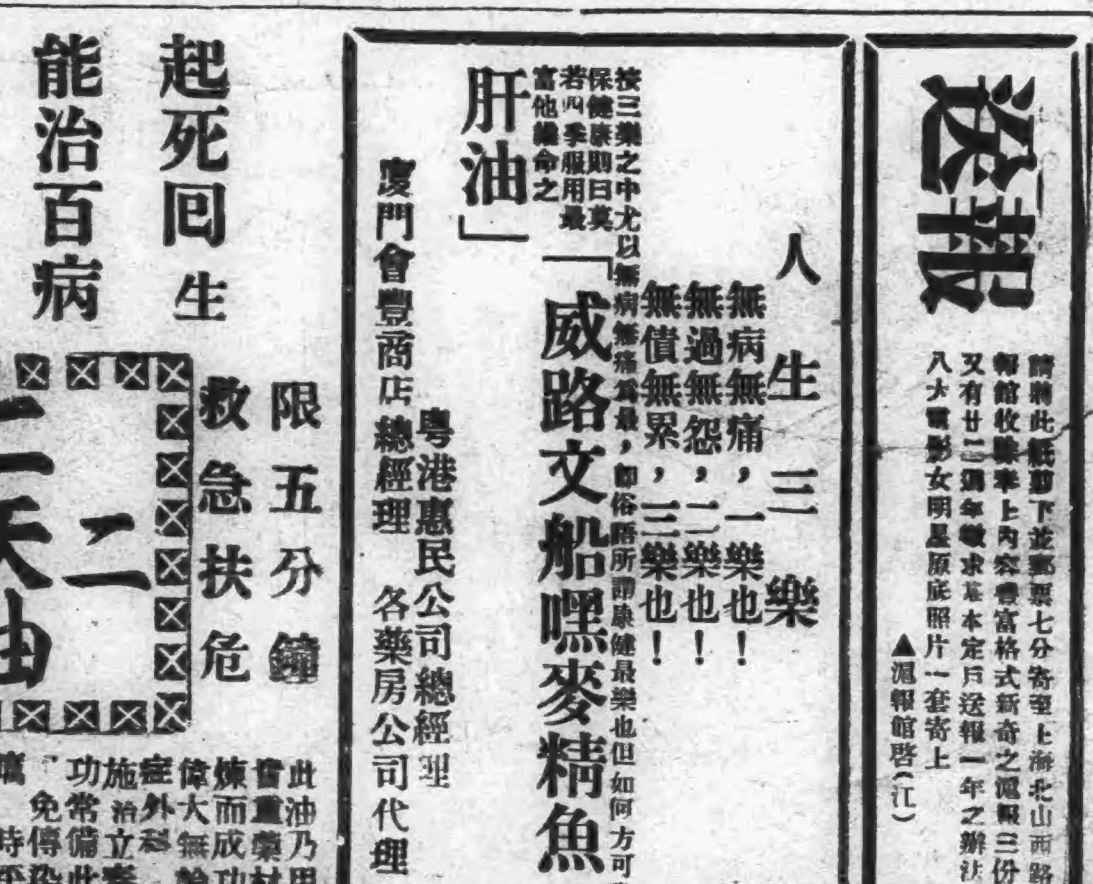 送報
請將此紙剪下並郵票七分寄至上海北山西路
報館收 奉上內容豐富格式新奇之滬報三份
又有廿二週年徵求基本定戶送報一年之辦法
八大電影女明星原底照片一套寄上
▲滬報館啓(江)
人生三樂
無病無痛,一樂也!
無過無怨,二樂也!
無債無累,三樂也!
按三樂之中尤以無病無痛爲最,卽俗語所謂康健最樂也但如何方可
保健康則曰莫
若四季服用最
富他 命之
「威路文船嘿麥精魚
肝油」
粤港惠民公司總經理
廈門會豐商店總經理 各藥房公司代理
起死回生
能治百病
限五分鐘
救急扶危
二天油
此油乃用
貴重藥材
煉而成功
偉大無論
症外科
施治立奏
功常備此
免傳染
時